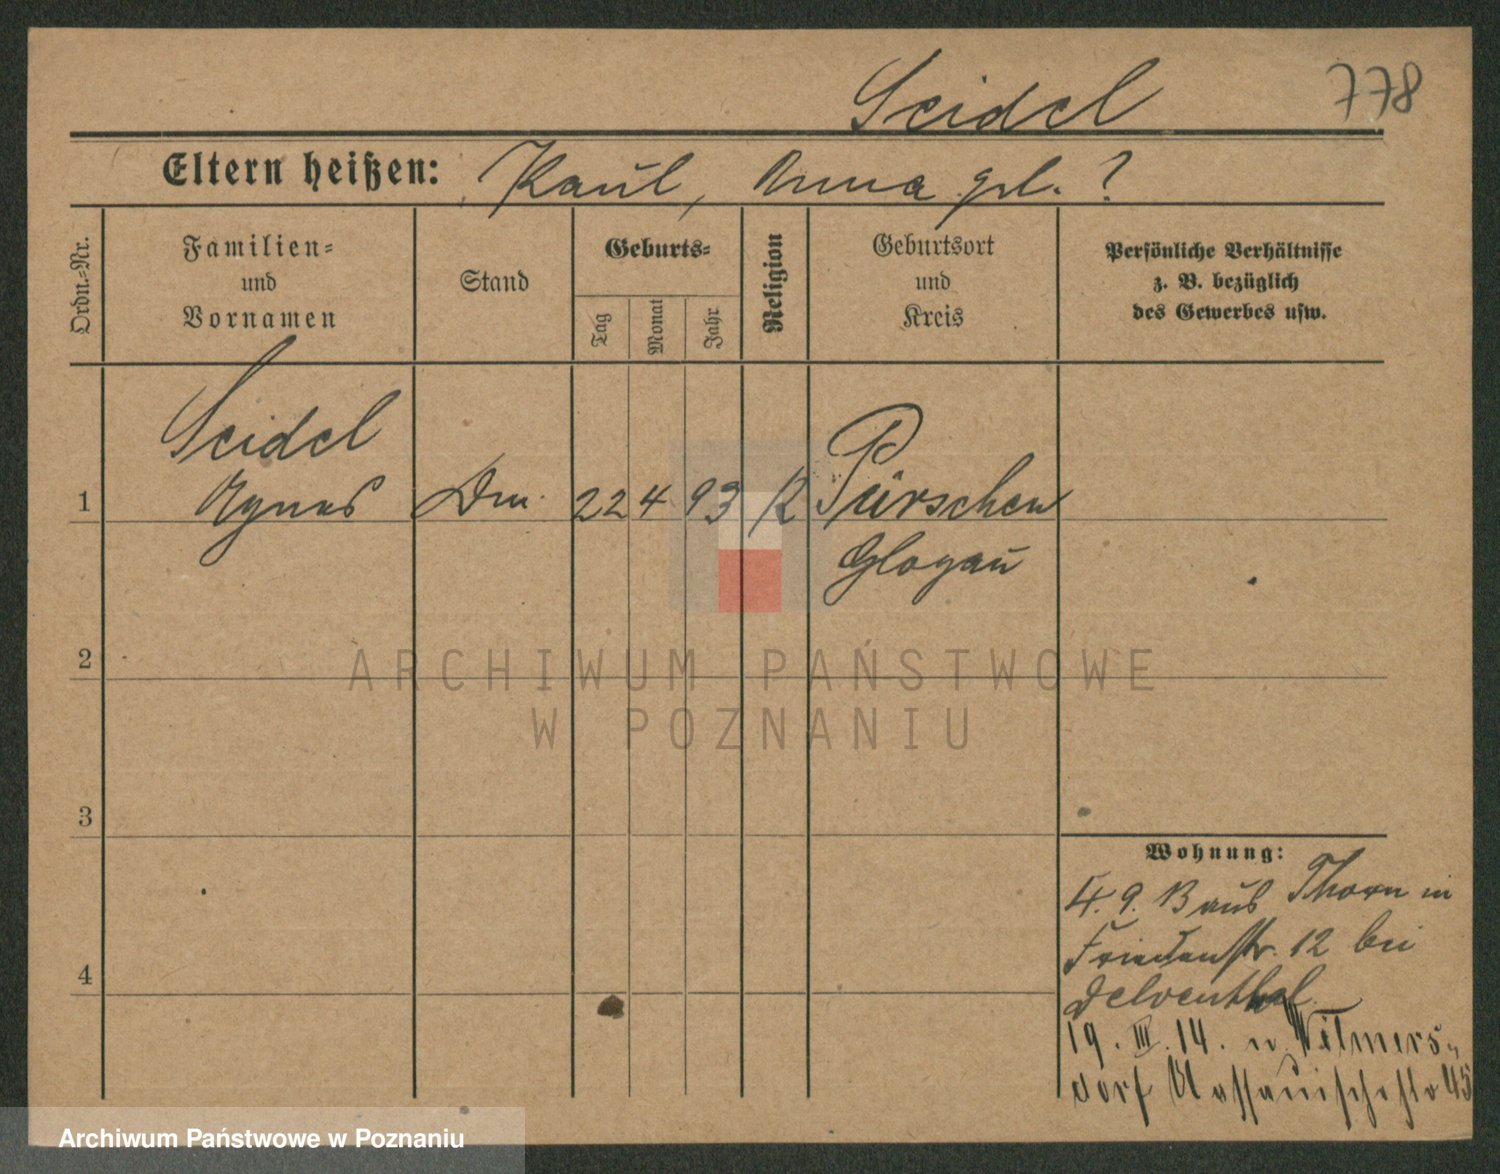 Seidel 778
Eltern heißen: Karl, Anna geb. ?
Ordn.-Nr.
Familien-
und
Vornamen
Stand
Geburts-
Tag
Monat
Jahr
Religion
Geburtsort
und
Kreis
Persönliche Verhältnisse
z. B. bezüglich
des Gewerbes usw.
Seidel
1 Agnes 22 4 93 K Pürschen
Glogau
2
ARCHIWUM PAŃSTWOWE
W POZNANIU
3
Wohnung:
4. 9. 13 aus Thorn in
Friedenstr. 12 bei
4 Delventhal
19. III. 14. n. Wilmers-
dorf Nassauischestr 45
Archiwum Państwowe w Poznaniu